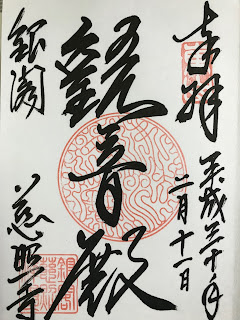 奉拝
平成三十年
二月十一日
觀音殿
銀閣
慈照寺